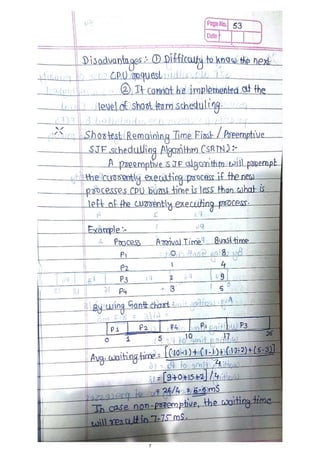 Page No. 53
Date
Disadvantages :- ① Difficulty to know the next
CPU request
②. It cannot be implemented at the
level of short term scheduling.
X Shortest Remaining Time First / Preemptive
SJF scheduling Algorithm (SRTN) :-
A preemptive SJF algorithm will preempt
the currently executing process if the new
processes CPU burst time is less than what is
left of the currently executing process.
Example :-
Process Arrival Time Burst time
P1 0 8
P2 1 4
P3 2 9
P4 3 5
By using Gantt chart
P1 P2 P4 P1 P3
0 1 5 10 17 26
Avg. waiting time = [(10-1)+(1-1)+(17-2)+(5-3)]
4
= [9+0+15+2] / 4
= 26/4 = 6.5 mS
In case non-preemptive, the waiting time
will result in 7.75 ms.